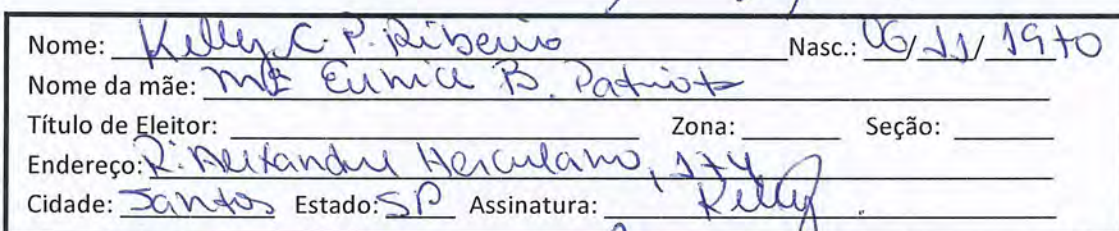 Nome: Kelly C. P. Ribeiro Nasc.: 06/11/1970
Nome da mãe: Mª Eunice B. Patriota
Título de Eleitor: Zona: Seção:
Endereço: R. Alexandre Herculano, 174
Cidade: Santos Estado: SP Assinatura: Kelly